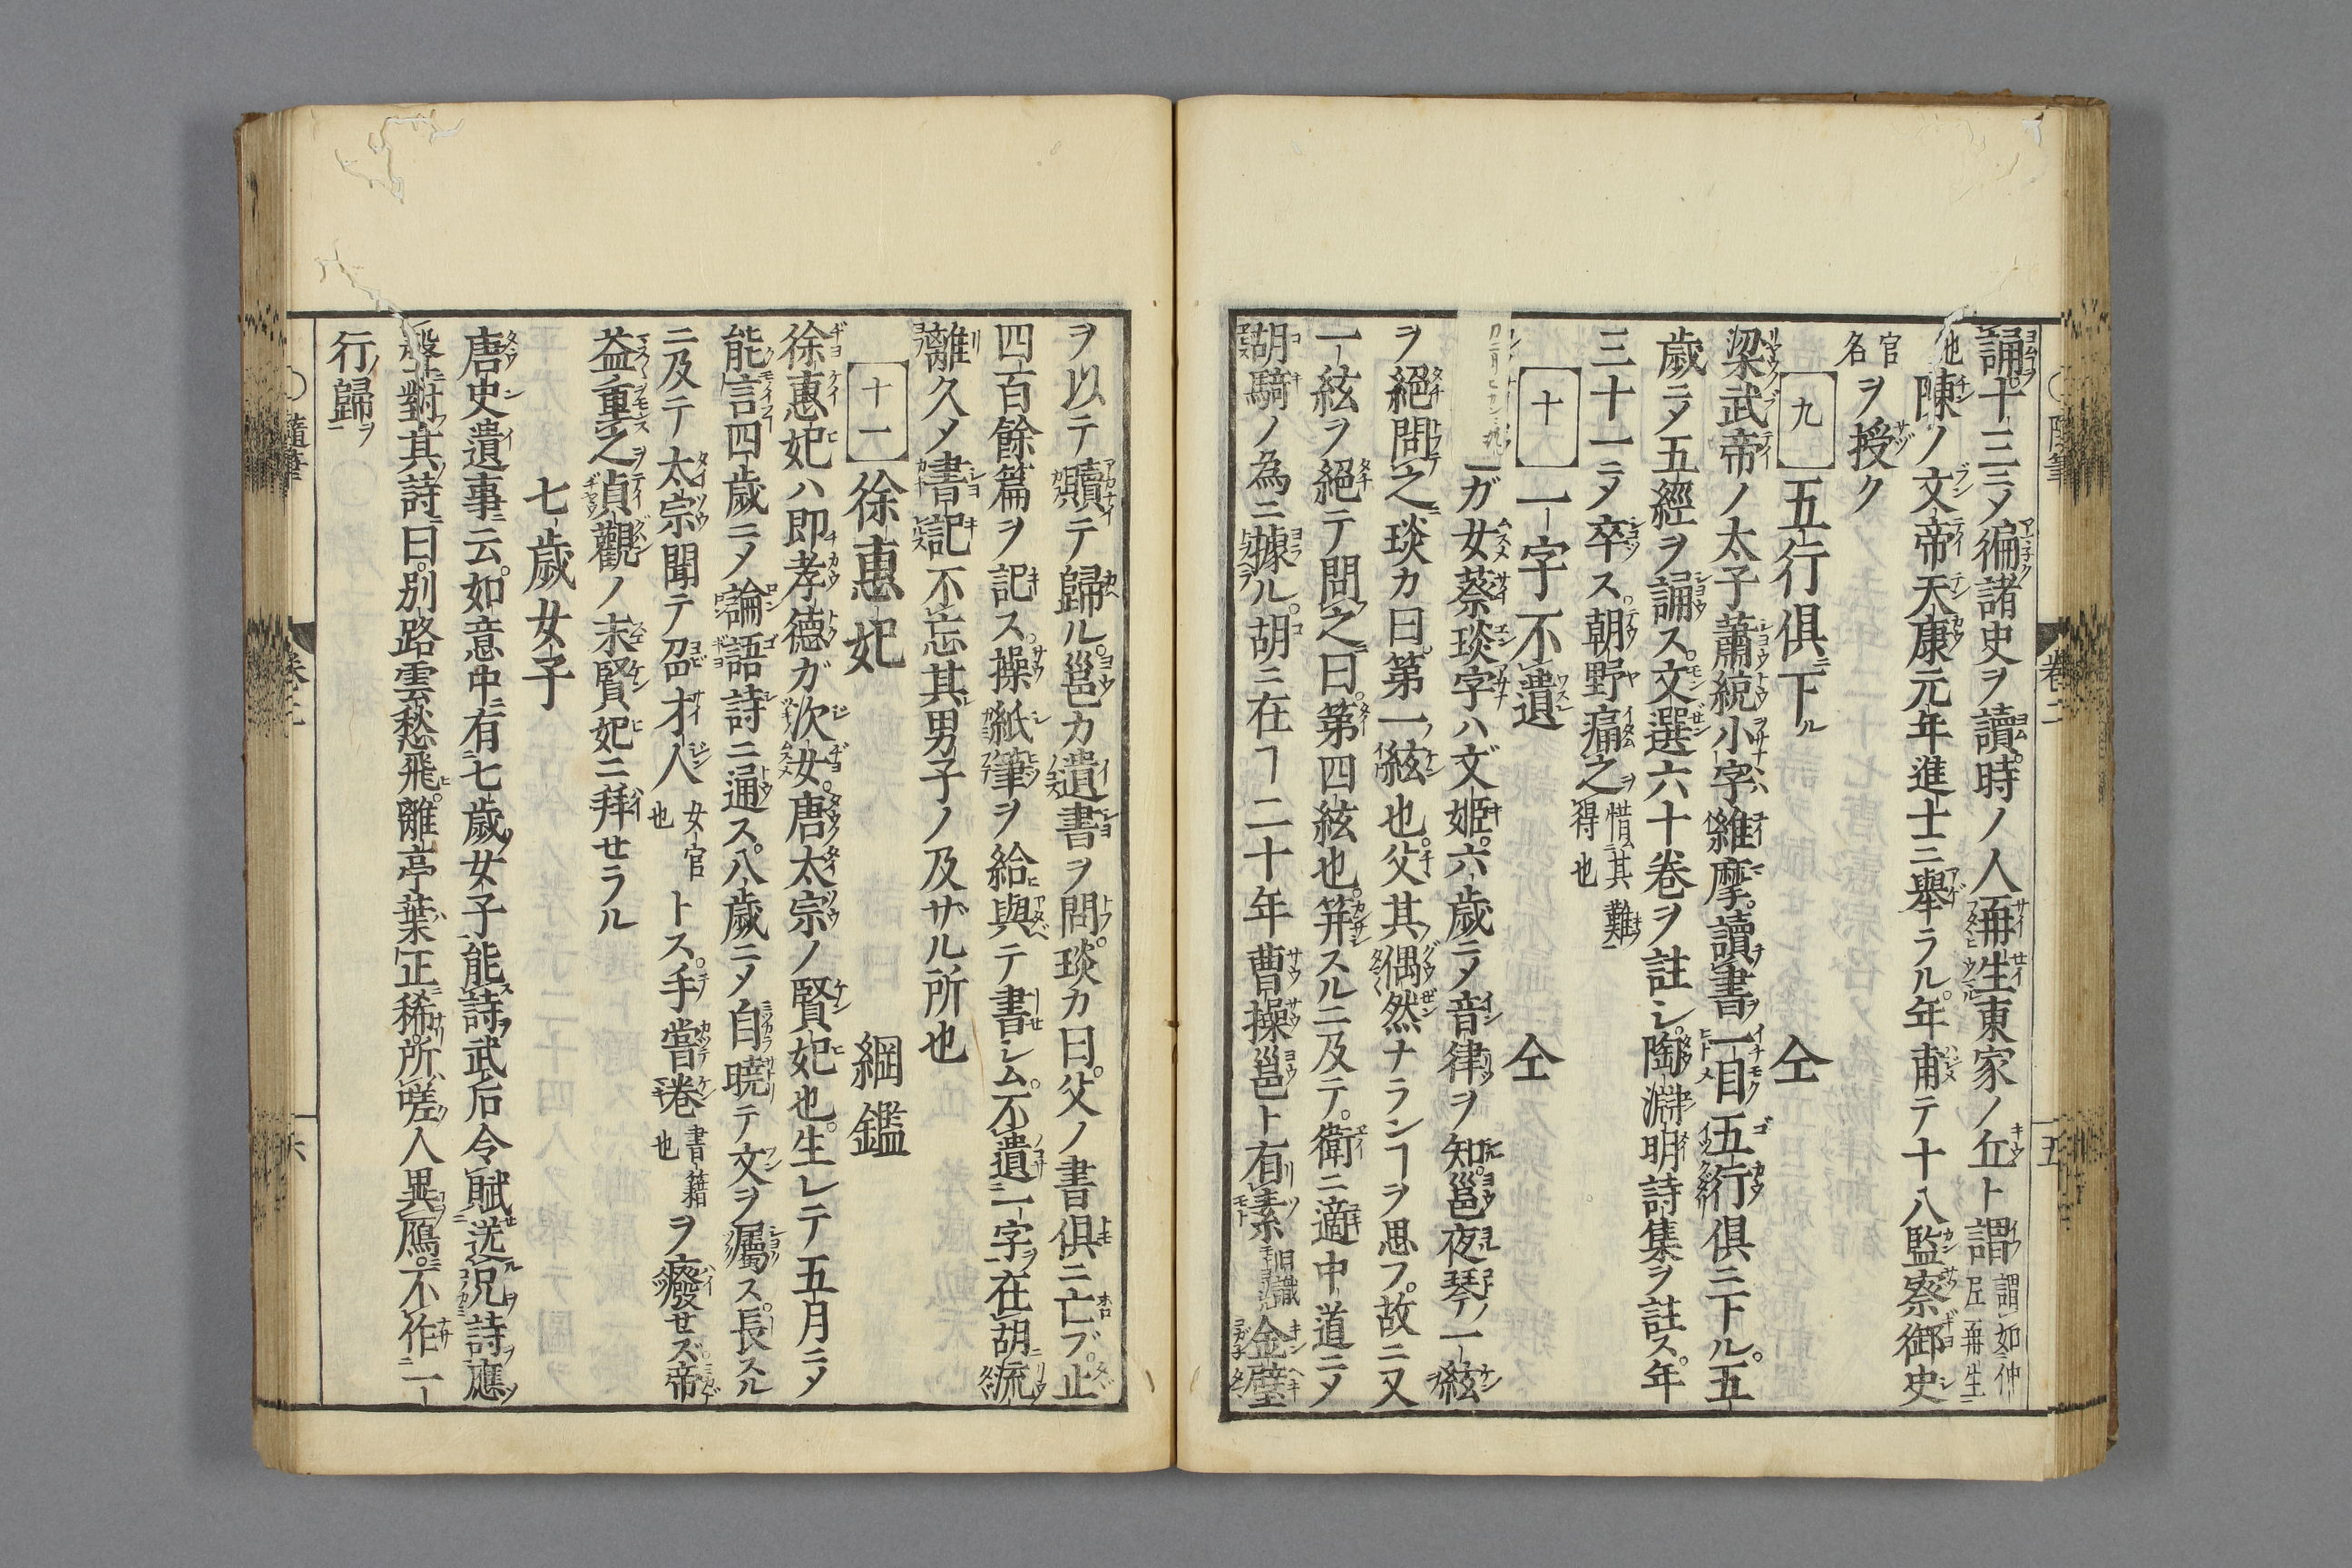 誦十三ニメ徧諸史ヲ讀時ノ人再生東家ノ丘ト謂 謂如仲尼再生
也 陳ノ文帝天康元年進士ニ擧ラル。年甫テ十八監察御史
官名ヲ授ク
九 五行俱下ル 仝
梁武帝ノ太子蕭統小字維摩。讀書一目五行俱ニ下ル。五
歲ニメ五經ヲ誦ス。文選六十卷ヲ註シ。陶淵明詩集ヲ註ス。年
三十一ニメ卒ス。朝野痛之 惜其難得也
十 一字不遺 仝
ガ女蔡琰字ハ文姬。六歲ニメ音律ヲ知。邕夜琴ノ一絃
ヲ絕問之琰カ曰。第一絃也。父其偶然ナランヿヲ思フ。故ニ又
一絃ヲ絕テ問之曰。第四絃也。笄スルニ及テ。衛ニ適中道ニメ
胡騎ノ為ニ據ル。胡ニ在ヿ二十年曹操邕ト有素 旧識 金璧
ヲ以テ贖テ歸ル。邕カ遺書ヲ問。琰カ曰。父ノ書俱ニ亡ブ。止
四百餘篇ヲ記ス。操紙筆ヲ給與テ書シム。不遺一字在胡流
離久メ書記不忘其男子ノ及ザル所也
十一 徐惠妃 綱鑑
徐惠妃ハ即孝德ガ次女。唐太宗ノ賢妃也。生レテ五月ニメ
能言四歲ニメ論語詩ニ通ス。八歲ニメ自曉テ文ヲ屬ス。長スル
ニ及テ太宗聞テ召才人 女官也 トス。手嘗卷 書籍也 ヲ癈せズ。帝
益重之貞觀ノ末賢妃ニ拜せラル
七歲女子
唐史遺事云。如意中有七歲女子能詩。武后令賦送兄詩應
聲對其詩曰。別路雲愁飛。離亭葉正稀。所嗟人異鴈。不作一
行歸
〇隨筆 卷二 五
〇隨筆 卷二 六